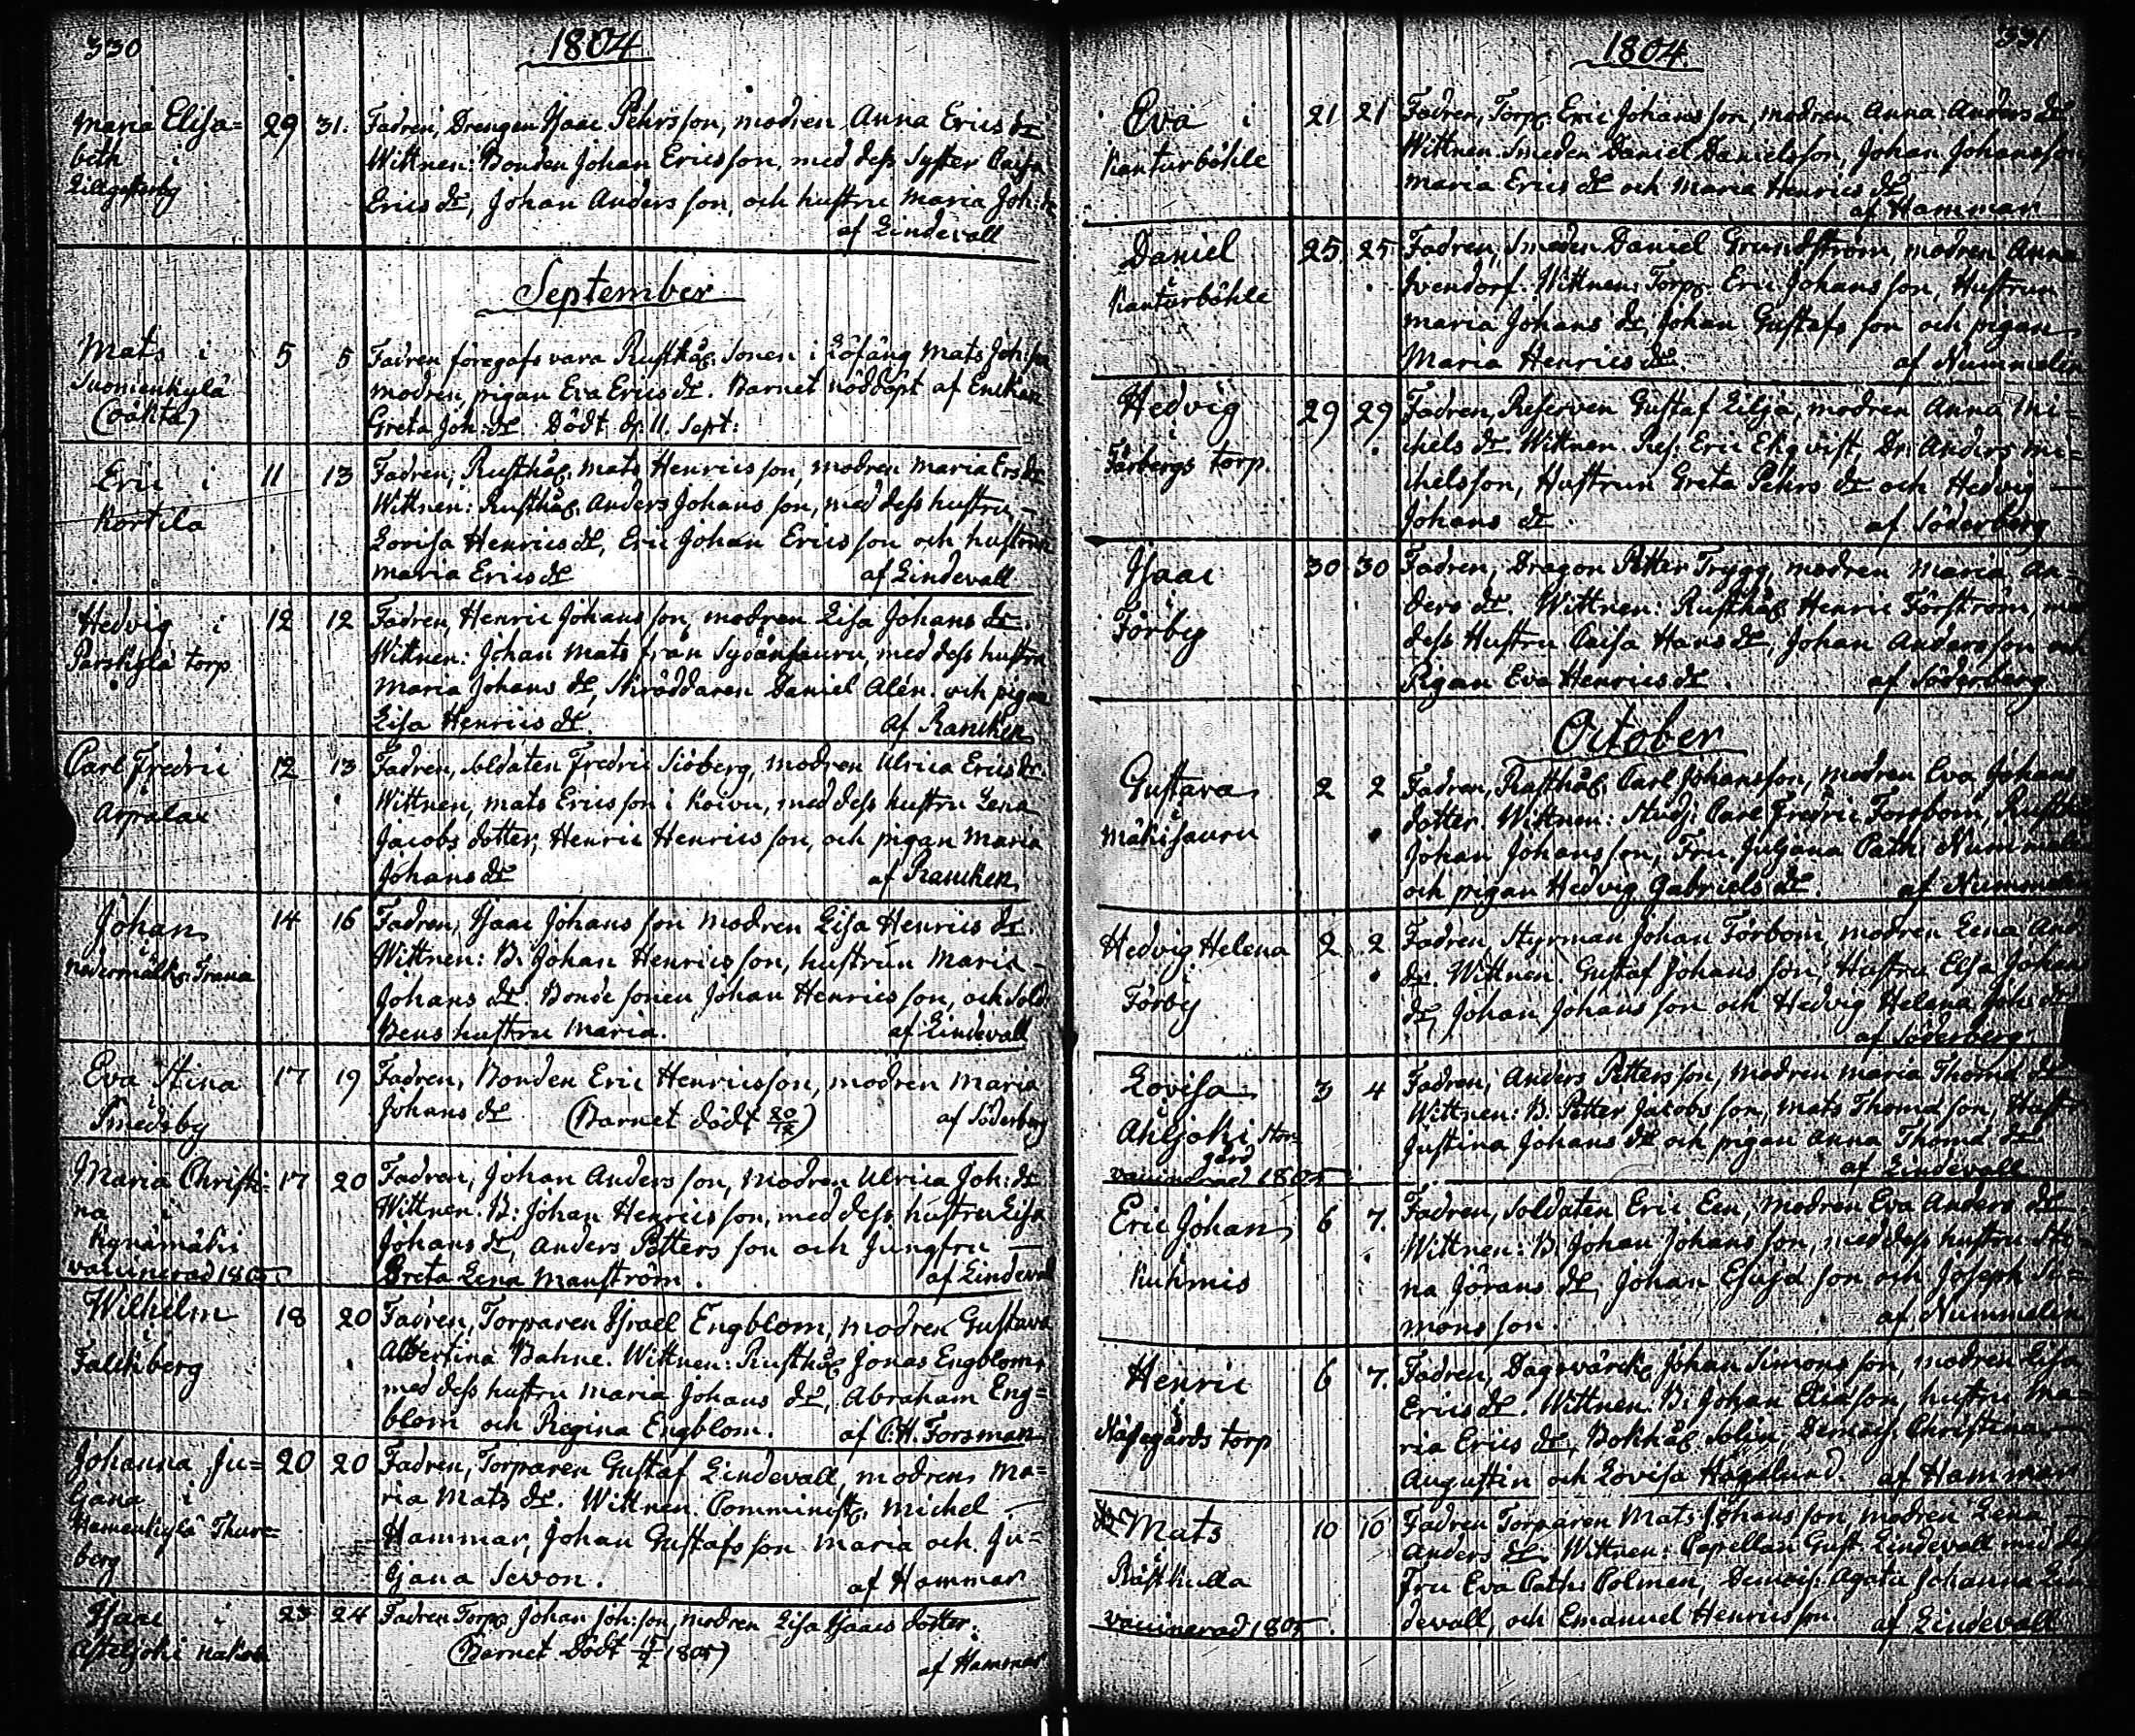 330
1804
Maria Elisa=
beth i
29 31. Fadren, Drengen Isaac Pehrsson, modren Anna Erics dr
Wittnen: Bonden Johan Ericsson, med dess Syster Caisa
Erics dr, Johan Andersson, och hustru Maria Joh: dr
af Lindevall
September
Mats i
Suomenkylä
(oäkta)
5 5 Fadren föregafs vara Rusthåll. Sonen i Löfäng Mats Joh:son
modren pigan Eva Erics dr. Barnet nöddöpt af Enkan
Greta Joh: dr. Dödt d. 11. Sept:
Eric i
Kortila
11 13 Fadren, Rusthåll. Mats Henricsson, modren Maria Ers dr
Wittnen: Rusthåll. Anders Johansson, med dess hustru
Lovisa Henrics dr, Eric Johan Ericsson och hustrun
Maria Erics dr af Lindevall
Hedvig i
Parskylä torp
12 12 Fadren, Henric Johansson, modren Lisa Johans dr.
Wittnen: Johan Mats från Sydänsauru, med dess hustru
Maria Johans dr, Skräddaren Daniel Alén. och pigan
Lisa Henrics dr. af Rancken
Carl Fredric
i
Arpalax
12 13 Fadren, Soldaten Fredric Siöberg, modren Ulrica Erics dr.
Wittnen, Mats Ericsson i Koivu, med dess hustru Lena
Jacobs dotter, Henric Henricsson, och pigan Maria
Johans dr af Rancken
Johan
i
14 16 Fadren, Isaac Johansson modren Lisa Henrics dr.
Wittnen: B. Johan Henricsson, hustrun Maria
Johans dr. Bonde sonen Johan Henricsson, och Sold.
Bens hustru Maria. af Lindevall
Eva Stina
i
Smedsby
17 19 Fadren, Bonden Eric Henricsson, modren Maria
Johans dr (Barnet dödt 20/12) af Söderberg
Maria Christi=
na i
Kynämäki
vaccinerad 1805
17 20 Fadren, Johan Andersson, modren Ulrica Joh: dr
Wittnen. B: Johan Henricsson, med dess hustru Lisa
Johans dr, Anders Pettersson och Jungfru
Greta Lena Manström. af Lindevall
Wilhelm
i
Falckberg
18 20 Fadren, Torparen Israel Engblom, modren Gustava
Albertina Bahne. Wittnen: Rusthåll Jonas Engblom,
med dess hustru Maria Johans dr, Abraham Eng=
blom och Regina Engblom. af C.H. Forsman
Johanna Ju=
liana i
Hamenkylä Thure=
berg
20 20 Fadren, Torparen Gustaf Lindevall, modren Ma=
ria Mats dr. Wittnen. Comminist. Michel
Hammar, Johan Gustafsson Maria och Ju=
liana Sevon. af Hammar
Isaac i
23 24 Fadren Torp. Johan Joh:son, modren Lisa Isaacs dotter.
(Barnet Dödt 1805) af Hammar
331
1804.
Eva i
Kanturböhle
21 21 Fadren, Torp. Eric Johansson, modren Anna Anders dr
Wittnen. Smeden Daniel Danielsson, Johan Johansson
Maria Erics dr och Maria Henrics dr
af Hammar
Daniel
i
Kanturböhle
25 25 Fadren, Smeden Daniel Grundström, modren Anna
Ivendorf. Wittnen: Torp. Eric Johansson, Hustrun
Maria Johans dr, Johan Gustafsson och pigan
Maria Henrics dr. af Nummelin
Hedvig
i
Färbergs torp.
29 29 Fadren, Reserven Gustaf Lilja, modren Anna Mi=
chels dr. Wittnen. Res: Eric Ekqvist, Dr. Anders Mi=
chelsson, Hustrun Greta Pehrs dr och Hedvig
Johans dr. af Söderberg
Isaac
i
Förby
30 30 Fadren, Dragon Petter Trygg, modren Maria An=
ders dr. Wittnen: Rusthåll Henric Förström, med
dess Hustru Caisa Hans dr, Johan Andersson och
Pigan Eva Henrics dr. af Söderberg
October
Gustava
i
Mäkisauru
2 2 Fadren, Rusthåll. Carl Johansson, modren Eva Johans
dotter. Wittnen: Stud: Carl Fredric Forsbom, Rusthåll
Johan Johansson, Fru Juliana Cath: Nummelin
och pigan Hedvig Gabriels dr. af Nummelin
Hedvig Helena
i
Förby
2 2 Fadren, Styrman Johan Förbom, modren Lena And
dr. Wittnen. Gustaf Johansson, Hustru Elsa Johans
dr, Johan Johansson och Hedvig Helena Joh: dr
af Söderberg
Lovisa
i
Ahljoki Stor=
gård
vaccinerad 1805
3 4 Fadren, Anders Pettersson, modren Maria Thoma dr
Wittnen: B. Petter Jacobsson, Mats Thomasson, Hustr
Justina Johans dr och pigan Anna Thoma dr
af Lindevall
Eric Johan
Kuhmis
6 7. Fadren, Soldaten Eric Een, modren Eva Anders dr
Wittnen: B. Johan Johansson, med dess hustru Sti=
na Jörans dr, Johan Esaiasson och Joseph Si=
monsson. af Nummelin
Henric
i
Näsegårds torp
6 7. Fadren, Dagsvärck. Johan Simonsson, modren Lisa
Erics dr. Wittnen. B: Johan Eliasson, hustru Ma=
ria Erics dr, Bokhåll Solin, Demois: Christina
Augustin och Lovisa Högelund. af Hammar
Mats
i
Räfskulla
vaccinerad 1805.
10 10 Fadren Torparen Mats Johansson, modren Lena
Anders dr. Wittnen: Capellan Gust. Lindevall med dess
Fru Eva Cath: Polmen, Demois: Agata Johanna Lin
devall, och Emanuel Henricsson. af Lindevall